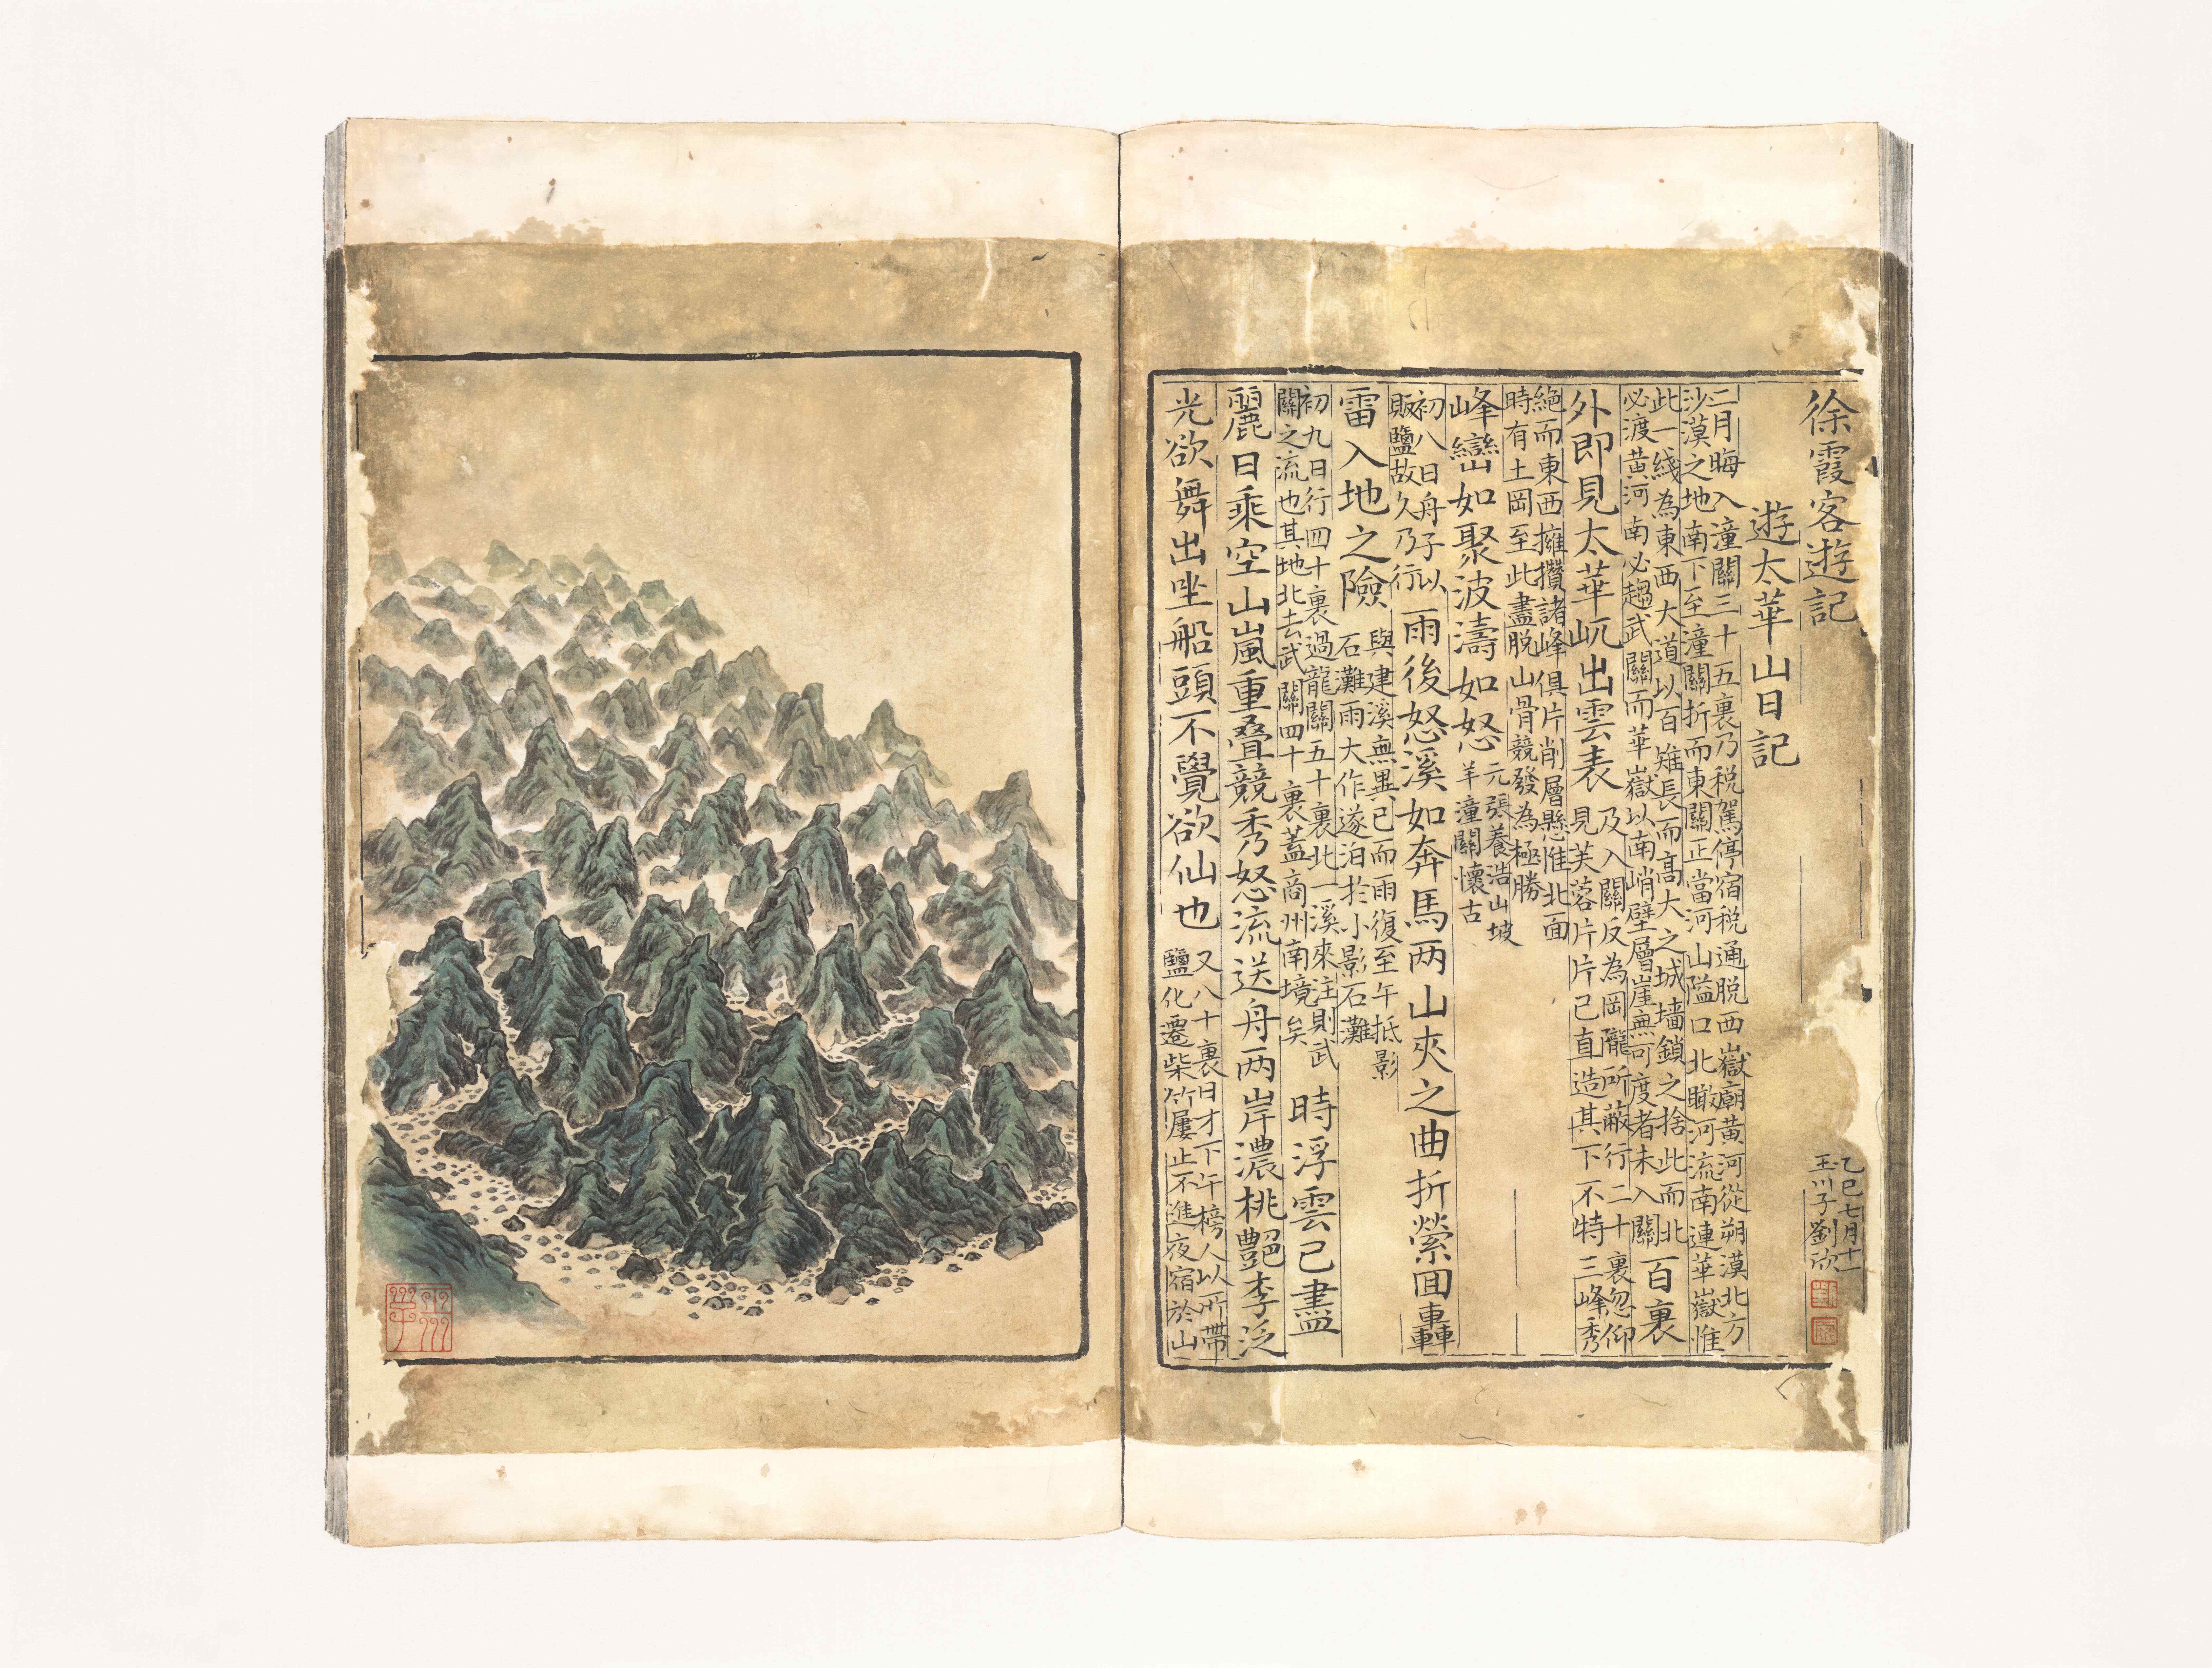 徐霞客遊記
乙巳七月十一
玉川子劉欣
遊太華山日記
二月晦入潼關三十五裏乃稅駕停宿稅通脫西嶽廟黃河從朔漠北方
沙漠之地南下至潼關折而東關正當河山隘口北瞰河流南連華嶽惟
此一綫為東西大道以百雉長而高大之城墻鎖之捨此而北
必渡黃河南必趨武關而華嶽以南峭壁層崖無可度者未入關
百裏
外即見太華屼出雲表
及入關反為岡隴所蔽行二十裏忽仰
見芙蓉片片已直造其下不特三峰秀
絕而東西擁攢諸峰俱片削層懸惟北面
時有土岡至此盡脫山骨競發為極勝
峰巒如聚波濤如怒
元張養浩山坡
羊潼關懷古
初八日舟子以
販鹽故久乃行
雨後怒溪如奔馬两山夾之曲折縈囬轟
雷入地之險
與建溪無異已而雨復至午抵影
石灘雨大作遂泊於小影石灘
初九日行四十裏過龍關五十裏北一溪來注則武
關之流也其地北去武關四十裏蓋商州南境矣
時浮雲已盡
麗日乘空山嵐重疊競秀怒流送舟两岸濃桃艷李泛
光欲舞出坐船頭不覺欲仙也
又八十裏日才下午榜人以所帶
鹽化遷柴竹屢止不進夜宿於山